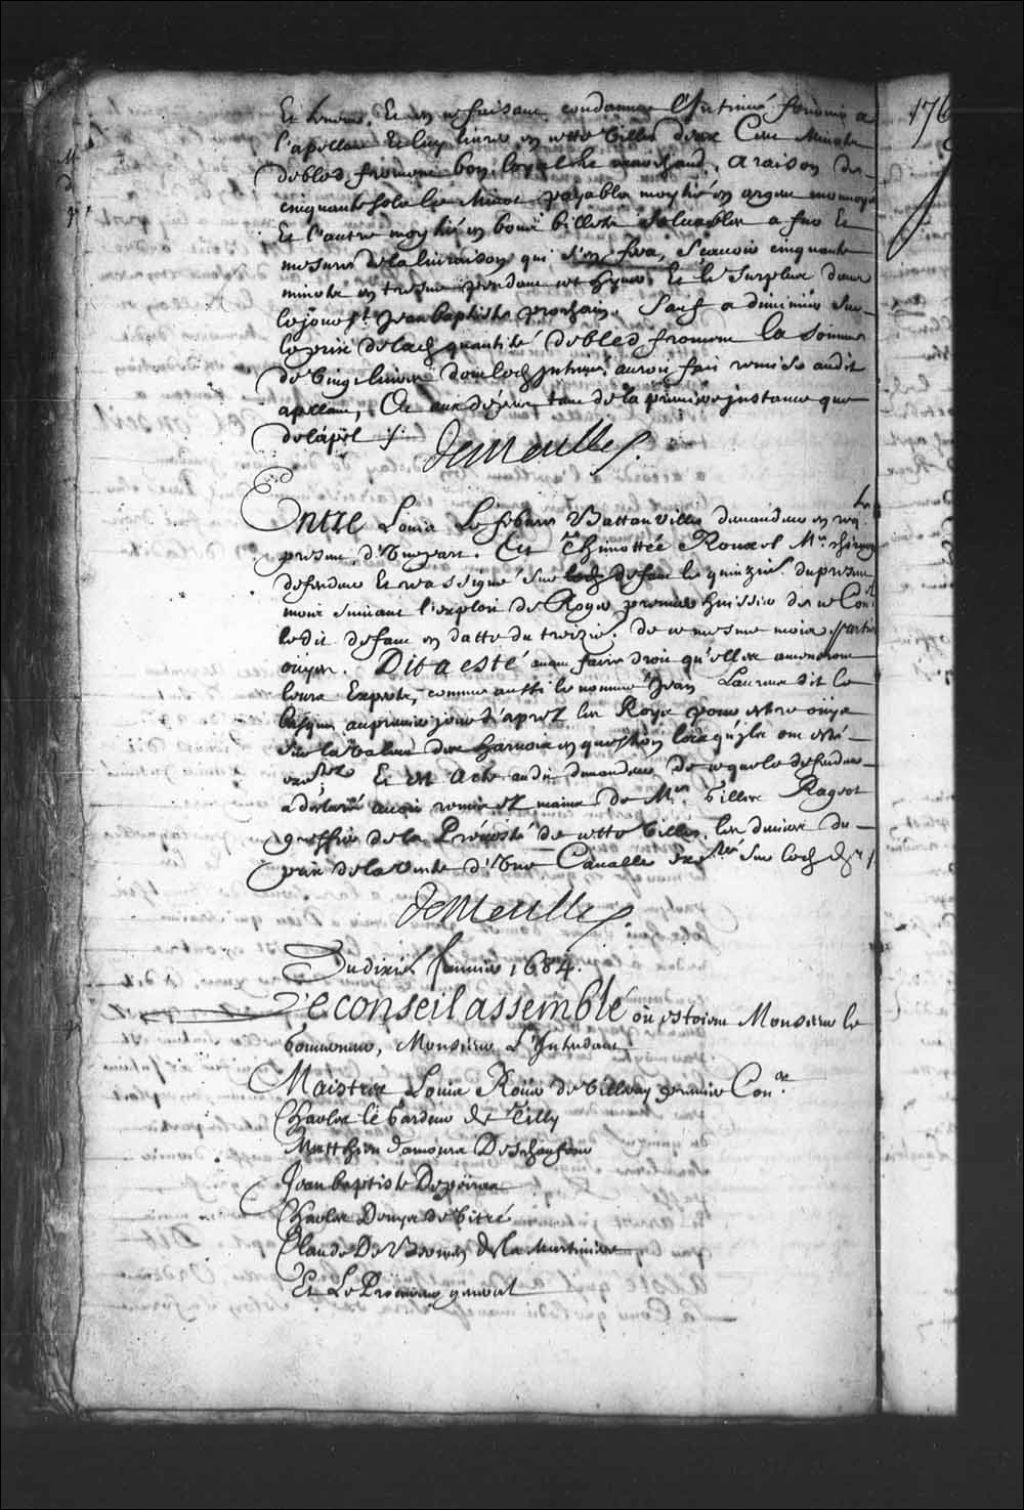 Et Emendant, Et en ce faisant condamne l'Intimé fournir a
l'apellant Et luy livrer en cette ville deux Cens Minots
de bled froment bon loyal et marchand, a raison de
cinquante sols le Minot payable moytié en argent monnoyé
Et l'autre moytié en bons billets valuables a fur Et
mesure de la livraison qui s'en fera, Scauoir cinquante
minots en presant pendant cet hyuer, Et le surplus dans
le jour St Jean baptiste prochain. Sauf a diminuer sur
le prix de lad quantité de bled froment la somme
de vingt livres dont led Intimé auroit fait remise audit
apellant, Et aux dépens tant de la premiere instance que
de l'apel ./.
DeMeulles
Entre Louis Lefebure Battanville demandeur en req.te
present d'Une part. Et Thimottée Roussel M.e chirurg
defendeur Et reassigné sur led defaut le quinzie. du present
mois suiuant l'exploit de Roger premier huissier de ce Con.el
ledit defaut en datte du treizie. de ce mesme mois, Parties
ouyes. Dit a esté auant faire droit qu'elles ameneront
leurs Experts, comme aussi le nommé Jean Laurens dit le
basque au premier jour d'aprez les Roys pour estre ouys
sur la valeur des harnois en question lorsqu'ils ont esté
Et est Acte audit demandeur de ce que le defendeur
a declaré auoir remis ez mains de M.e Gilles Rageot
greffier de la Préuosté de cette ville, les deniers du
prix de la vente d'Une Cavalle sur led
DeMeulles
Du dixie. Januier 1684.
Le conseil assemblé où estoient Monsieur le
Gouuerneur, Monsieur L'Intendant
Maistres Louis Roüer de Villeray premier Con.er
Charles le Gardeur de Tilly
Matthieu Damours Deschaufour
Jean baptiste Depeiras
Charles Denys de Vitré
Claude De Bermen de la Martiniere
Et Le Procureur general
176